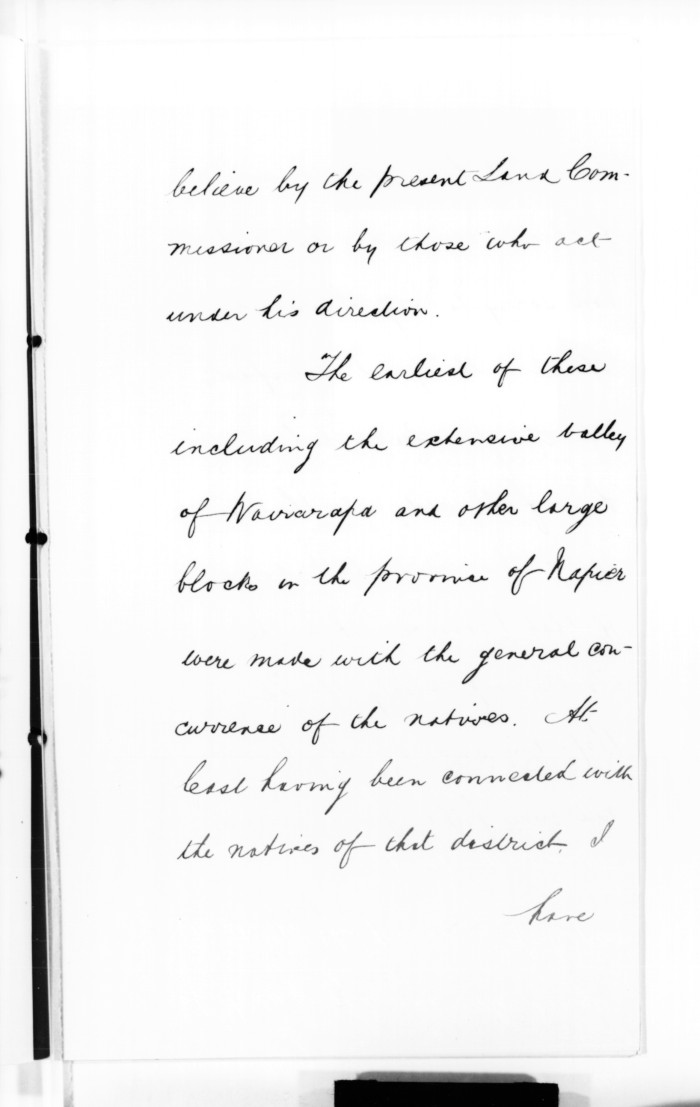 believe by the present Land Com-
missioner or by those who act
under his direction.
The earliest of these
including the extensive valley
of Wairarapa and other large
blocks in the province of Napier
were made with the general con-
currence of the natives. At
least having been connected with
the natives of that district, I
have